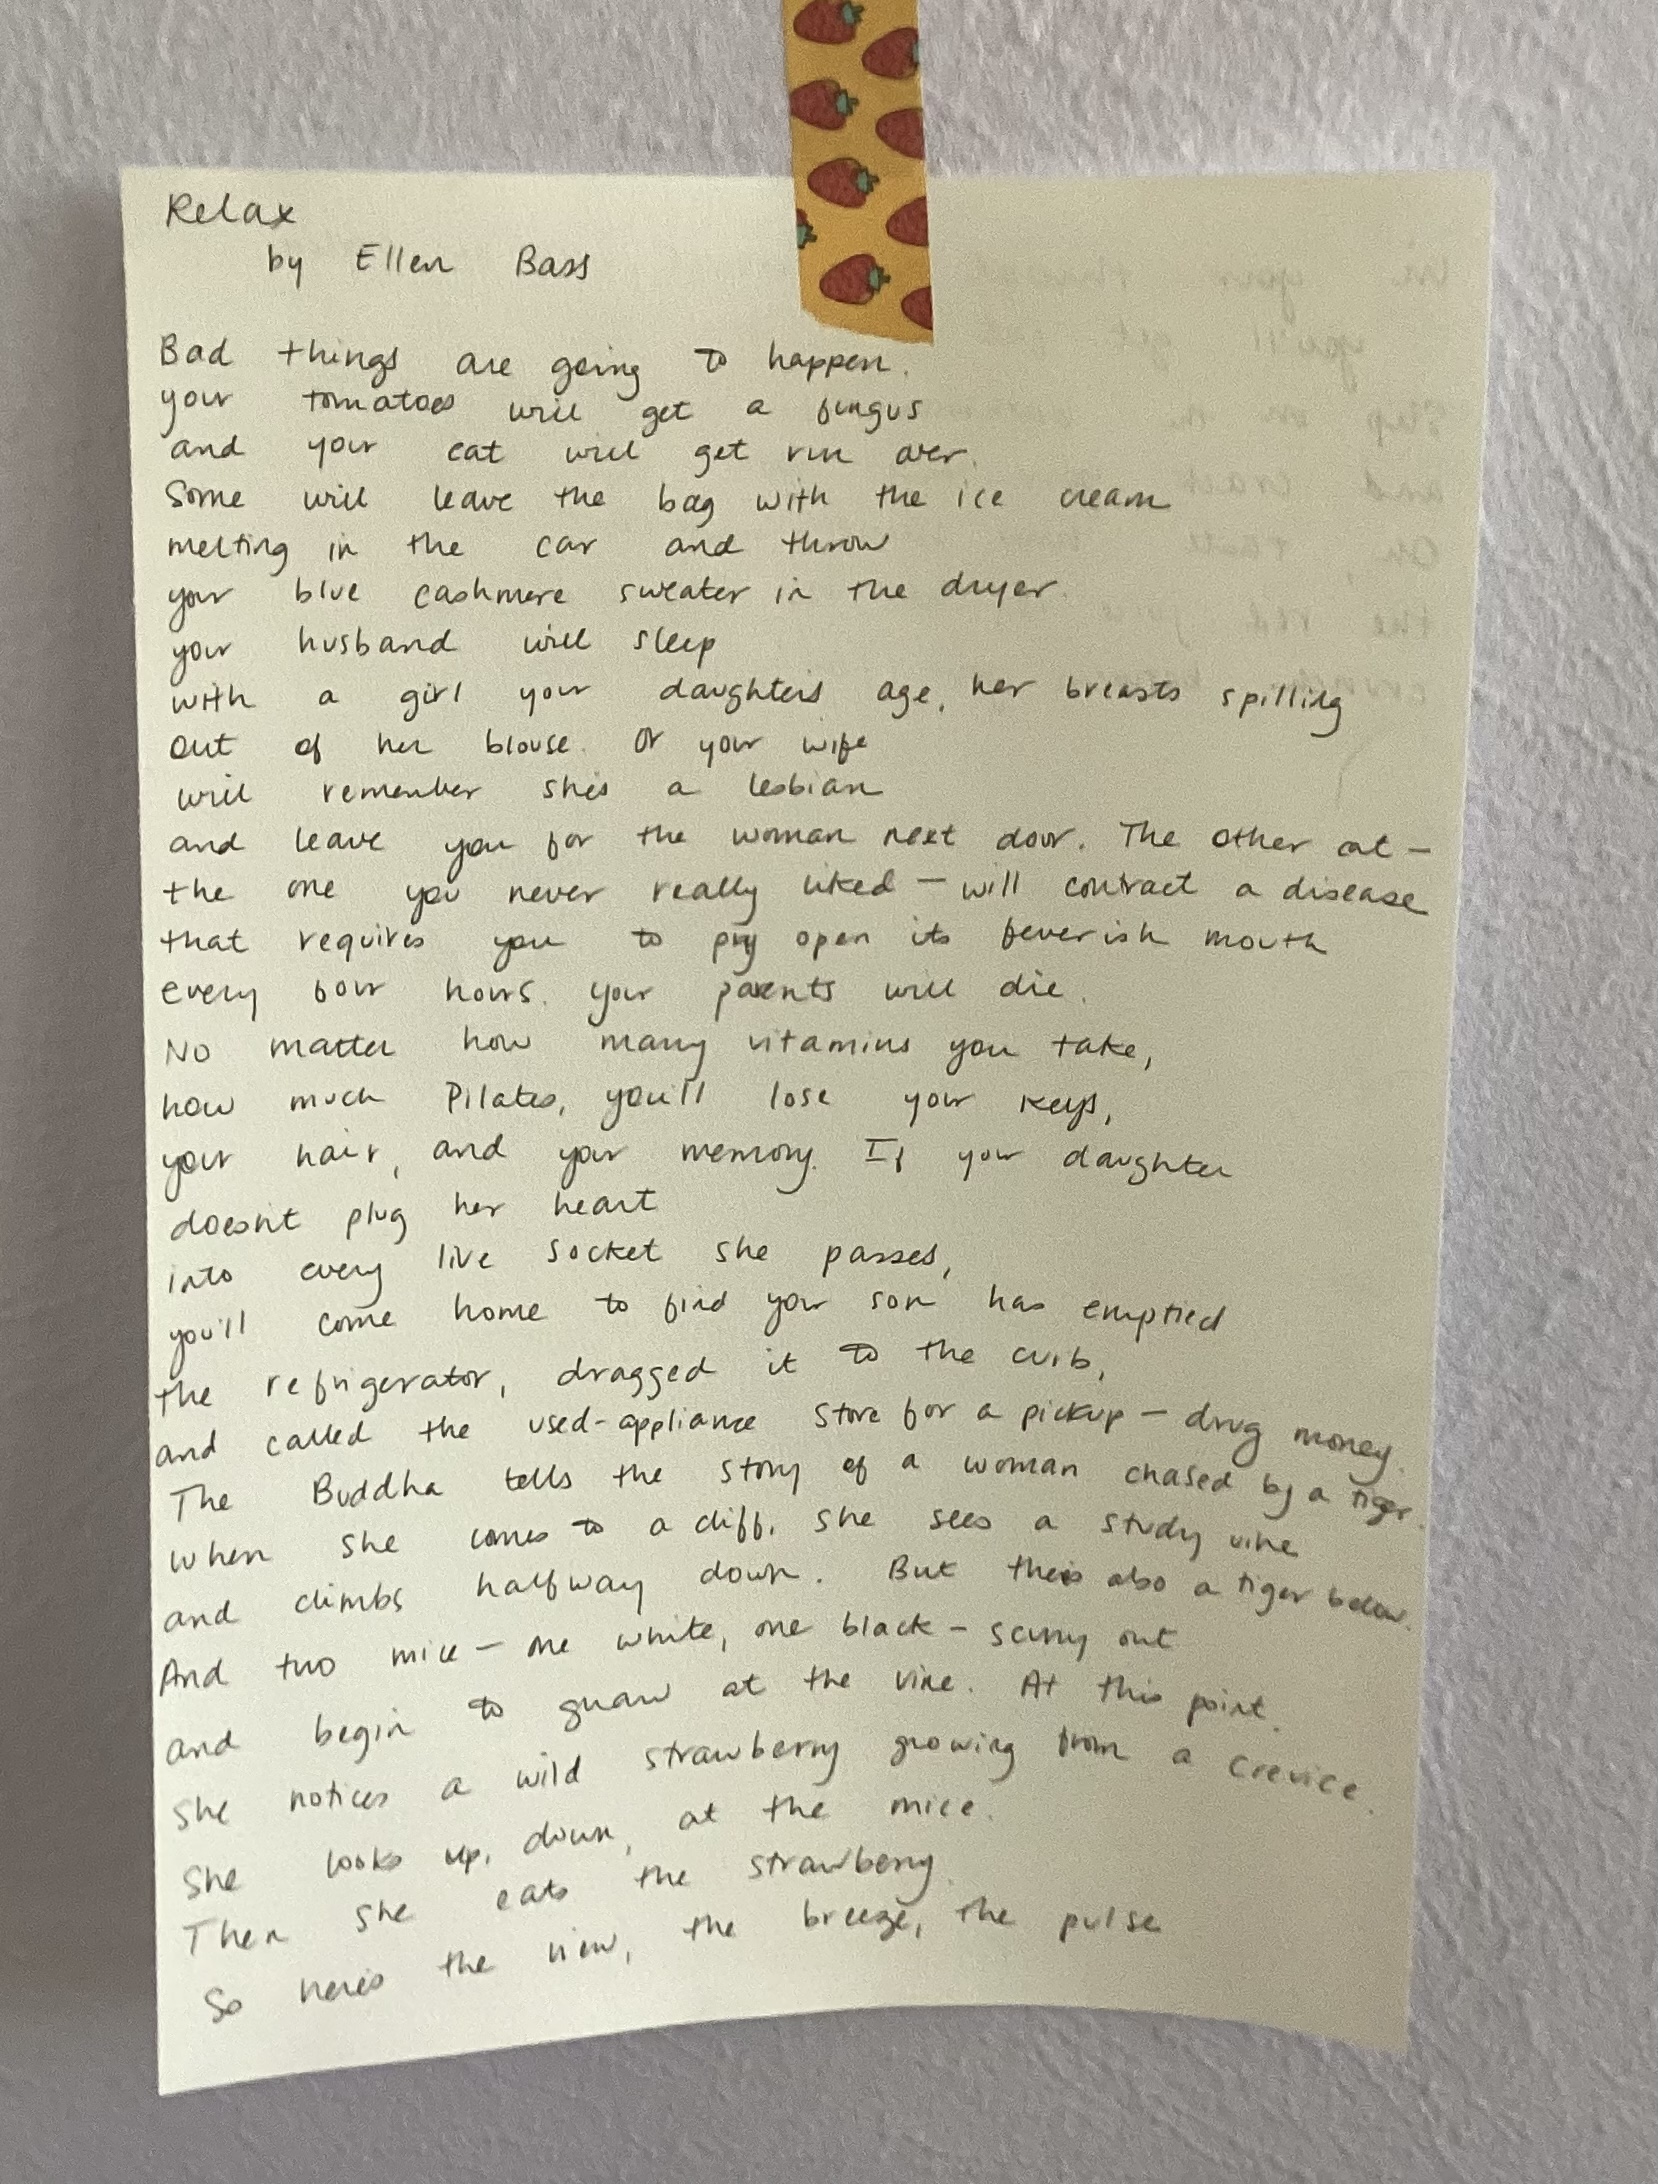 Relax
by Ellen Bass
Bad things are going to happen.
your tomatoes will get a fungus
and your cat will get run over.
Some will leave the bag with the ice cream
melting in the car and throw
your blue cashmere sweater in the dryer.
your husband will sleep
with a girl your daughter's age, her breasts spilling
out of her blouse. Or your wife
will remember she's a lesbian
and leave you for the woman next door. The other cat —
the one you never really liked — will contract a disease
that requires you to pry open its feverish mouth
every four hours. your parents will die.
No matter how many vitamins you take,
how much Pilates, you'll lose your keys,
your hair, and your memory. If your daughter
doesn't plug her heart
into every live socket she passes,
you'll come home to find your son has emptied
the refrigerator, dragged it to the curb,
and called the used-appliance store for a pickup — drug money.
The Buddha tells the story of a woman chased by a tiger.
When she comes to a cliff, she sees a study vine
and climbs halfway down. But there's also a tiger below.
And two mice — one white, one black — scurry out
and begin to gnaw at the vine. At this point.
She notices a wild strawberry growing from a crevice.
She looks up, down, at the mice.
Then she eats the strawberry.
So here's the view, the breeze, the pulse